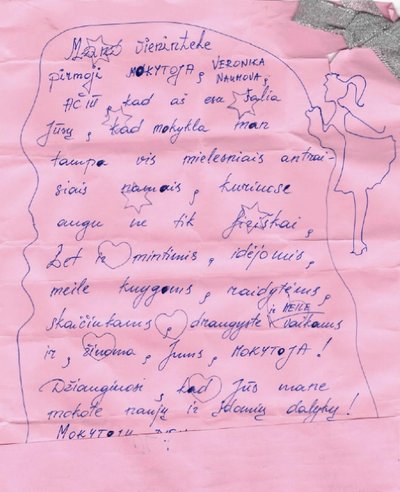 Mano vienintele
pirmoji MOKYTOJA, VERONIKA
NAUMOVA,
AČIŪ, kad aš esu šalia
Jūsų, kad mokykla man
tampa vis mielesniais antrai-
siais namais, kuriuose
augu ne tik fiziškai,
bet ir mintimis, idėjomis,
meile knygoms, raidytėms,
skaičiukams, draugyste ir MEILE
vaikams
ir, žinoma, Jums, MOKYTOJA!
Džiaugiuosi, kad Jūs mane
mokote naujų ir įdomių dalykų!
MOKYTOJŲ